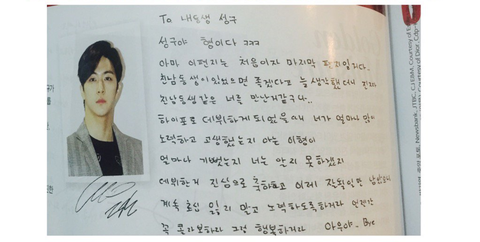 To 내동생 성구
성구야 형이다 ㅋㅋㅋ
아마 이편지는 처음이자 마지막 편지일거다..
친남동생이있었으면 좋겠다고 늘 생각했는데 진짜
친남동생같은 너를 만난거같구나..
하이포로 데뷔하게 되었을때 너가 얼마나 많이
노력하고 고생했는지 아는 이형이
얼마나 기뻤는지 너는 알지 못하겠지
데뷔한거 진심으로 축하하고 이제
계속 초심 잃지 말고 노력하도록하거라 언젠간
꼭 그럼 행복하거라 아우야. Bye
Newsbank, JTBC, CJ E&M, Courtesy of
Courtesy of Dior,